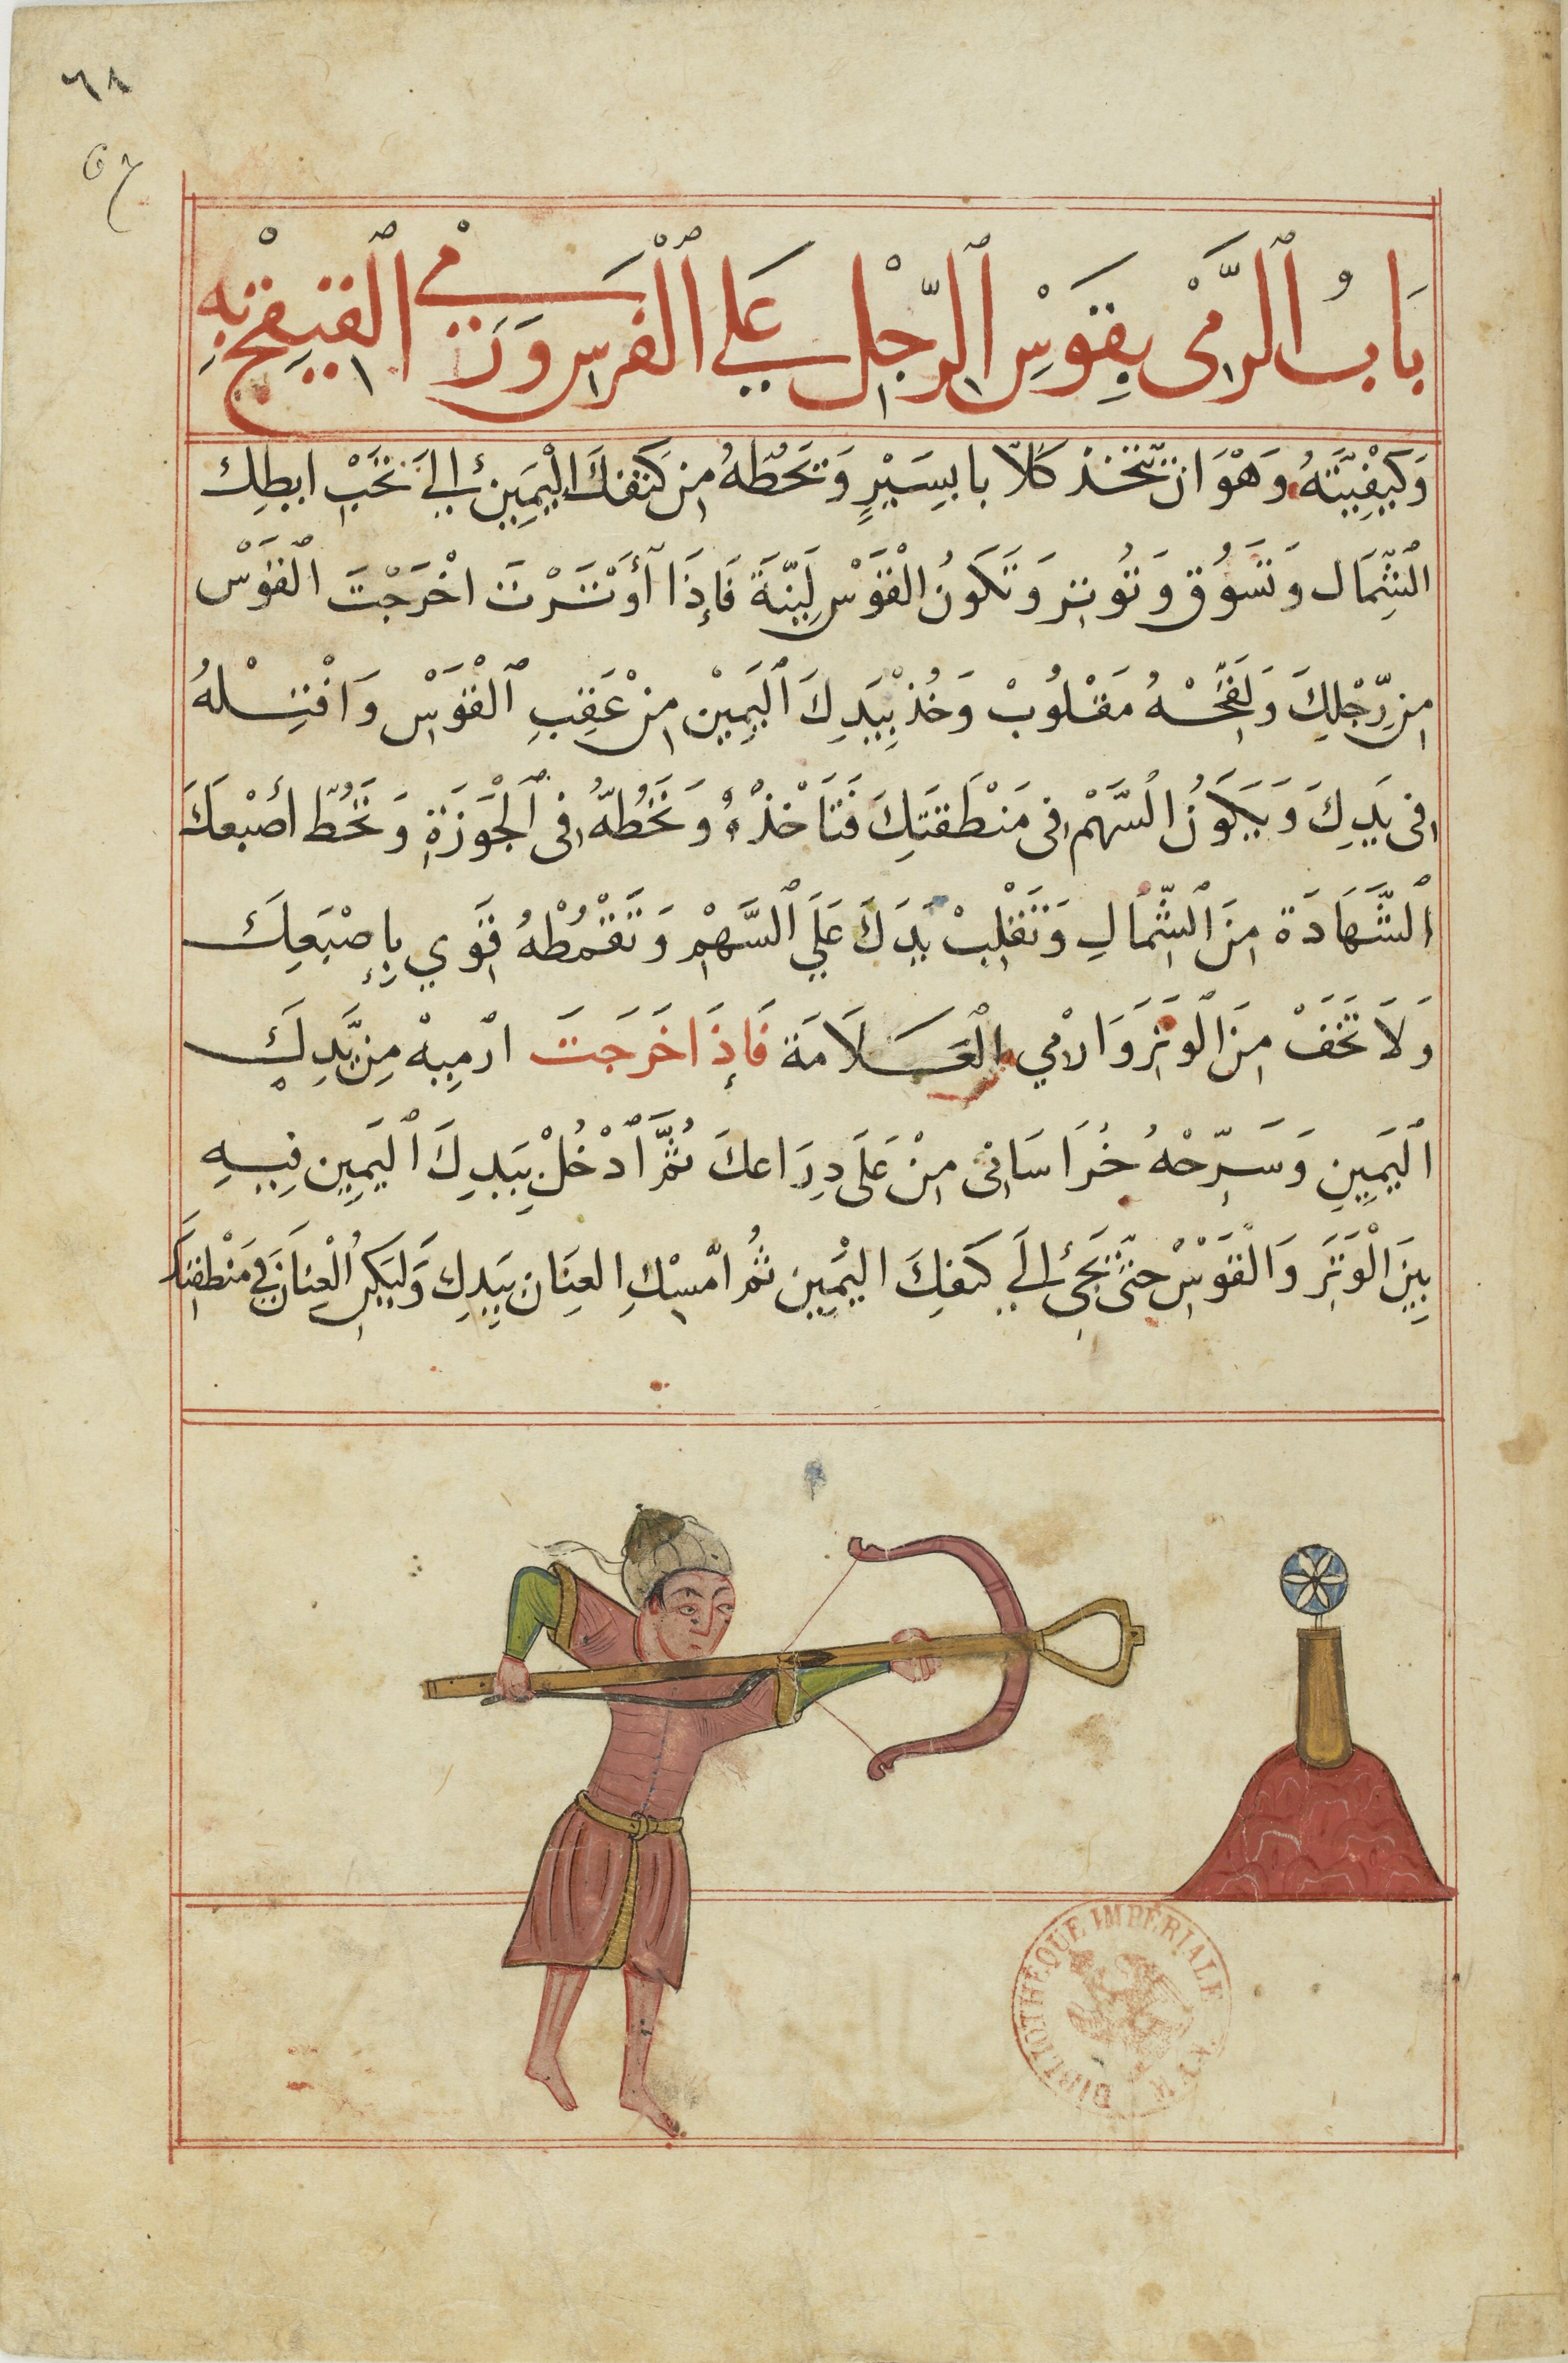 ٦٨
67
بَابُ الرَّمْي بِقَوْسِ الرِّجْل عَلي الْفَرَس وَرَمْي الْقِيقجْ بِهِ
وَكَيْفِيَّتهُ وَهْوَ ان تتّخذ كلّابا بِسَيْرٍ وَتَحُطّهُ مِن كَتفكَ الْيَمِين إلَي تَحْتِ ابطِك
الشِّمَال وَتَسُوق وَتُوتِر وَتَكونُ الْقَوْس لَيِّنَة فَإِذَا أَوْتَرْتَ اخْرَجْتَ الْقَوْس
مِن رِّجْلِكَ وَ مَقْلُوبْ وَخُذْ بِيَدِكَ الْيَمِيْن مِنْ عَقِبِ الْقَوْسِ وَافْتِلْهُ
فِى يَدِكَ وَيَكَوُنُ السَّهْم فِى مَنْطَقَتِكَ فَتَأخْذْهُ وَتَحُطّهُ فِى الْجَوْزَةِ وَتَحُطّ أصْبعَكَ
الشَّهَادَة مِنَ الشِّمَالِ وَتَقْلِبْ يَدَكَ عَلَي السَّهْمِ وَتَقْمُطْهُ قَوِي بِإِصْبَعِكَ
وَلَا تَخَفْ مِنَ الْوَتَرِ وَارْمِي الْعَلَامَة فَإِذَا خَرَجَتَ ارْمِيهْ مِن يَّدِكَ
الْيَمِينِ وَسَرِّحْهُ خُرَاسَانِى مِنْ عَلَى دِرَاعكَ ثُمَّ ادْخُلْ بِيَدِكَ الْيَمِينِ فِيهِ
بَيِنَ الْوَتَرِ وَالْقَوْسِ حتَّى تَجِئ إلَي كَتفِكَ الْيَمِين ثُم امْسِكِ العِنَان بِيَدِك وَليَكن الْعِنَانَ في مَنْطقتكَ
BIBLIOTHÈQUE IMPÉRIALE